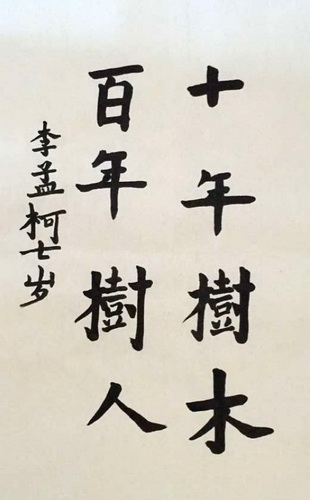 十年樹木
百年樹人
李孟柯七岁